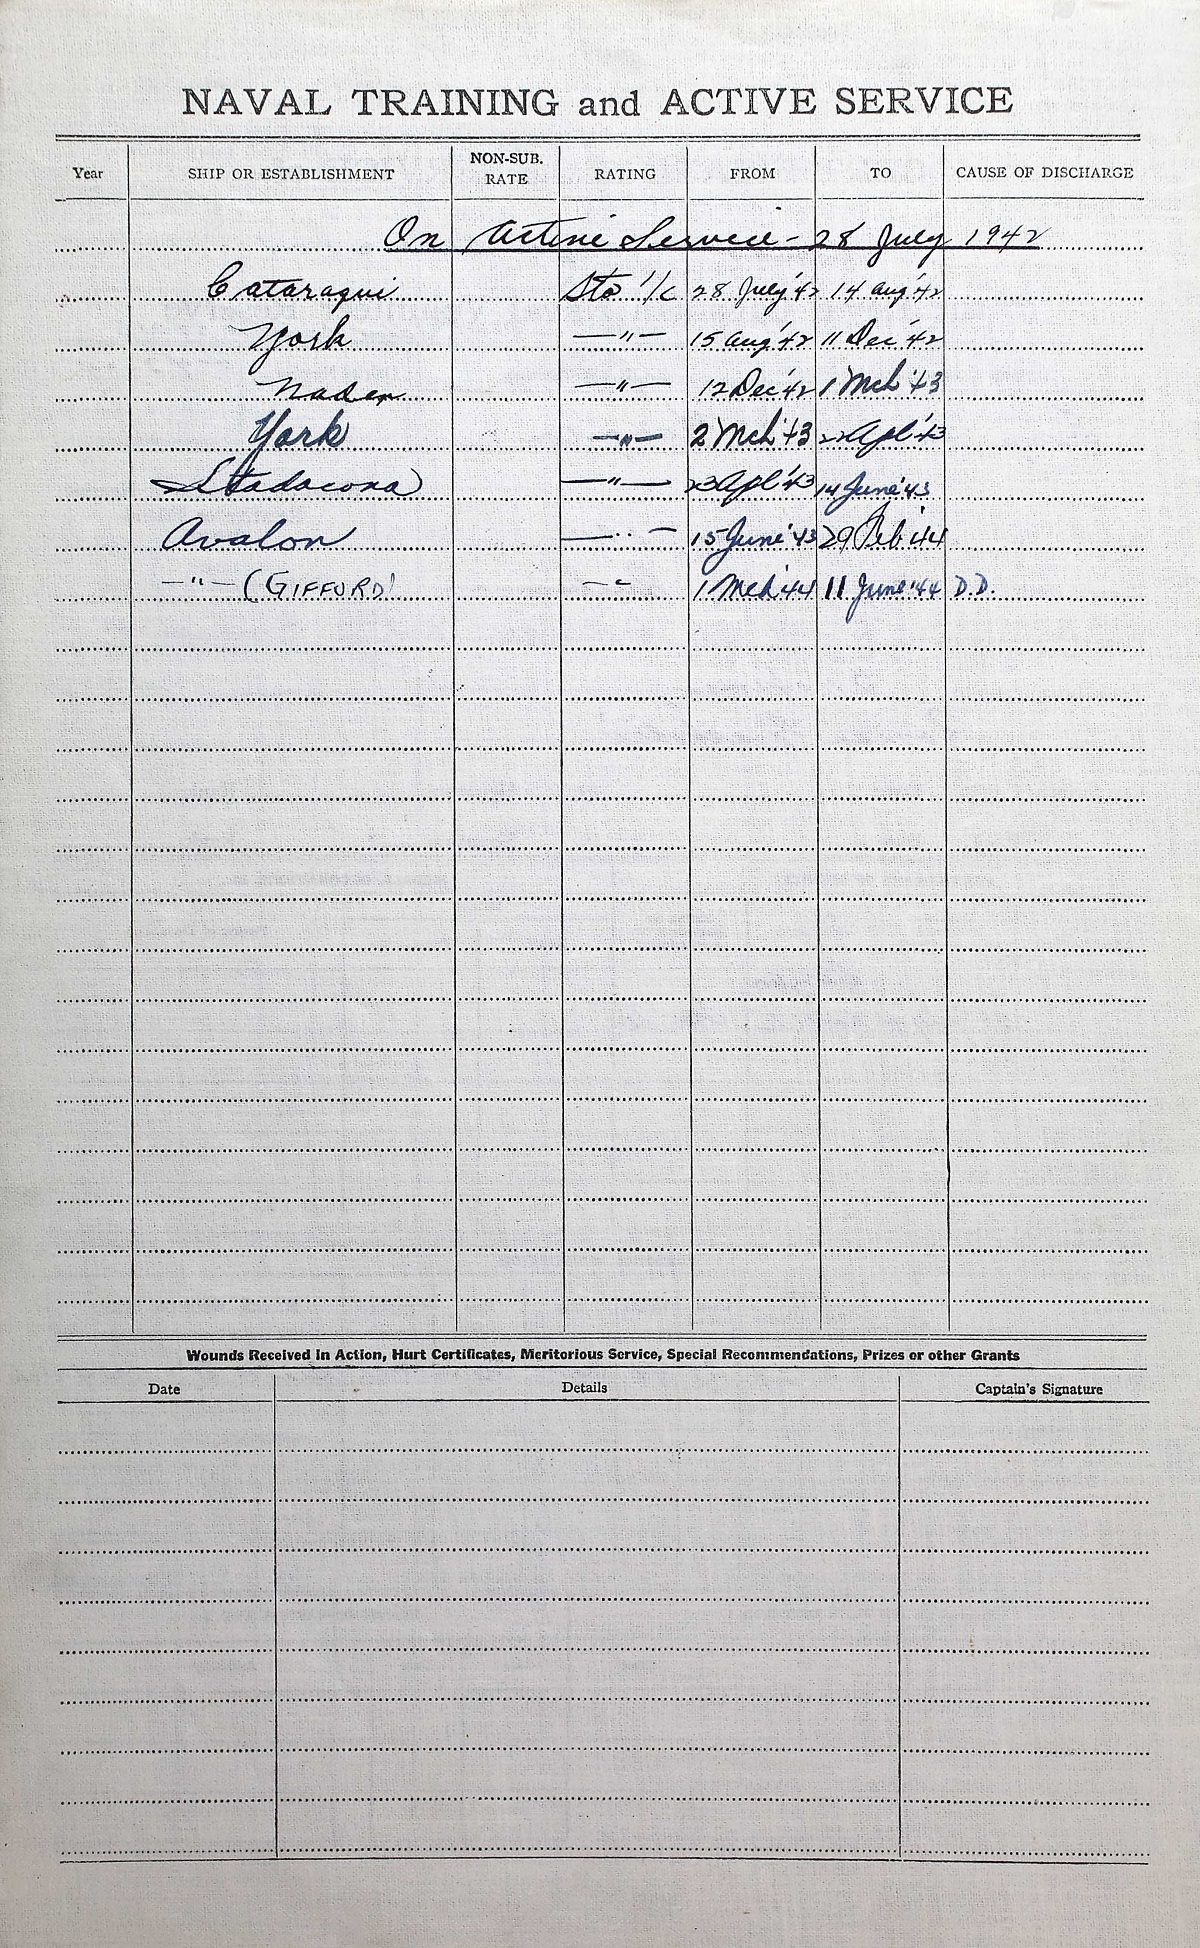 NAVAL TRAINING and ACTIVE SERVICE
Year SHIP OR ESTABLISHMENT NON-SUB. RATE RATING FROM TO CAUSE OF DISCHARGE
On Active Service - 28 July 1942
Cataraqui Sto 1/c 28 July '42 14 Aug '42
York —"— 15 Aug '42 11 Dec '42
Naden —"— 12 Dec '42 1 Mch '43
York —"— 2 Mch '43 22 Apl '43
Stadacona —"— 23 Apl '43 14 June '43
Avalon —"— 15 June '43 29 Feb '44
—"— (GIFFORD) —"— 1 Mch '44 11 June '44 D.D.
Wounds Received in Action, Hurt Certificates, Meritorious Service, Special Recommendations, Prizes or other Grants
Date Details Captain's Signature